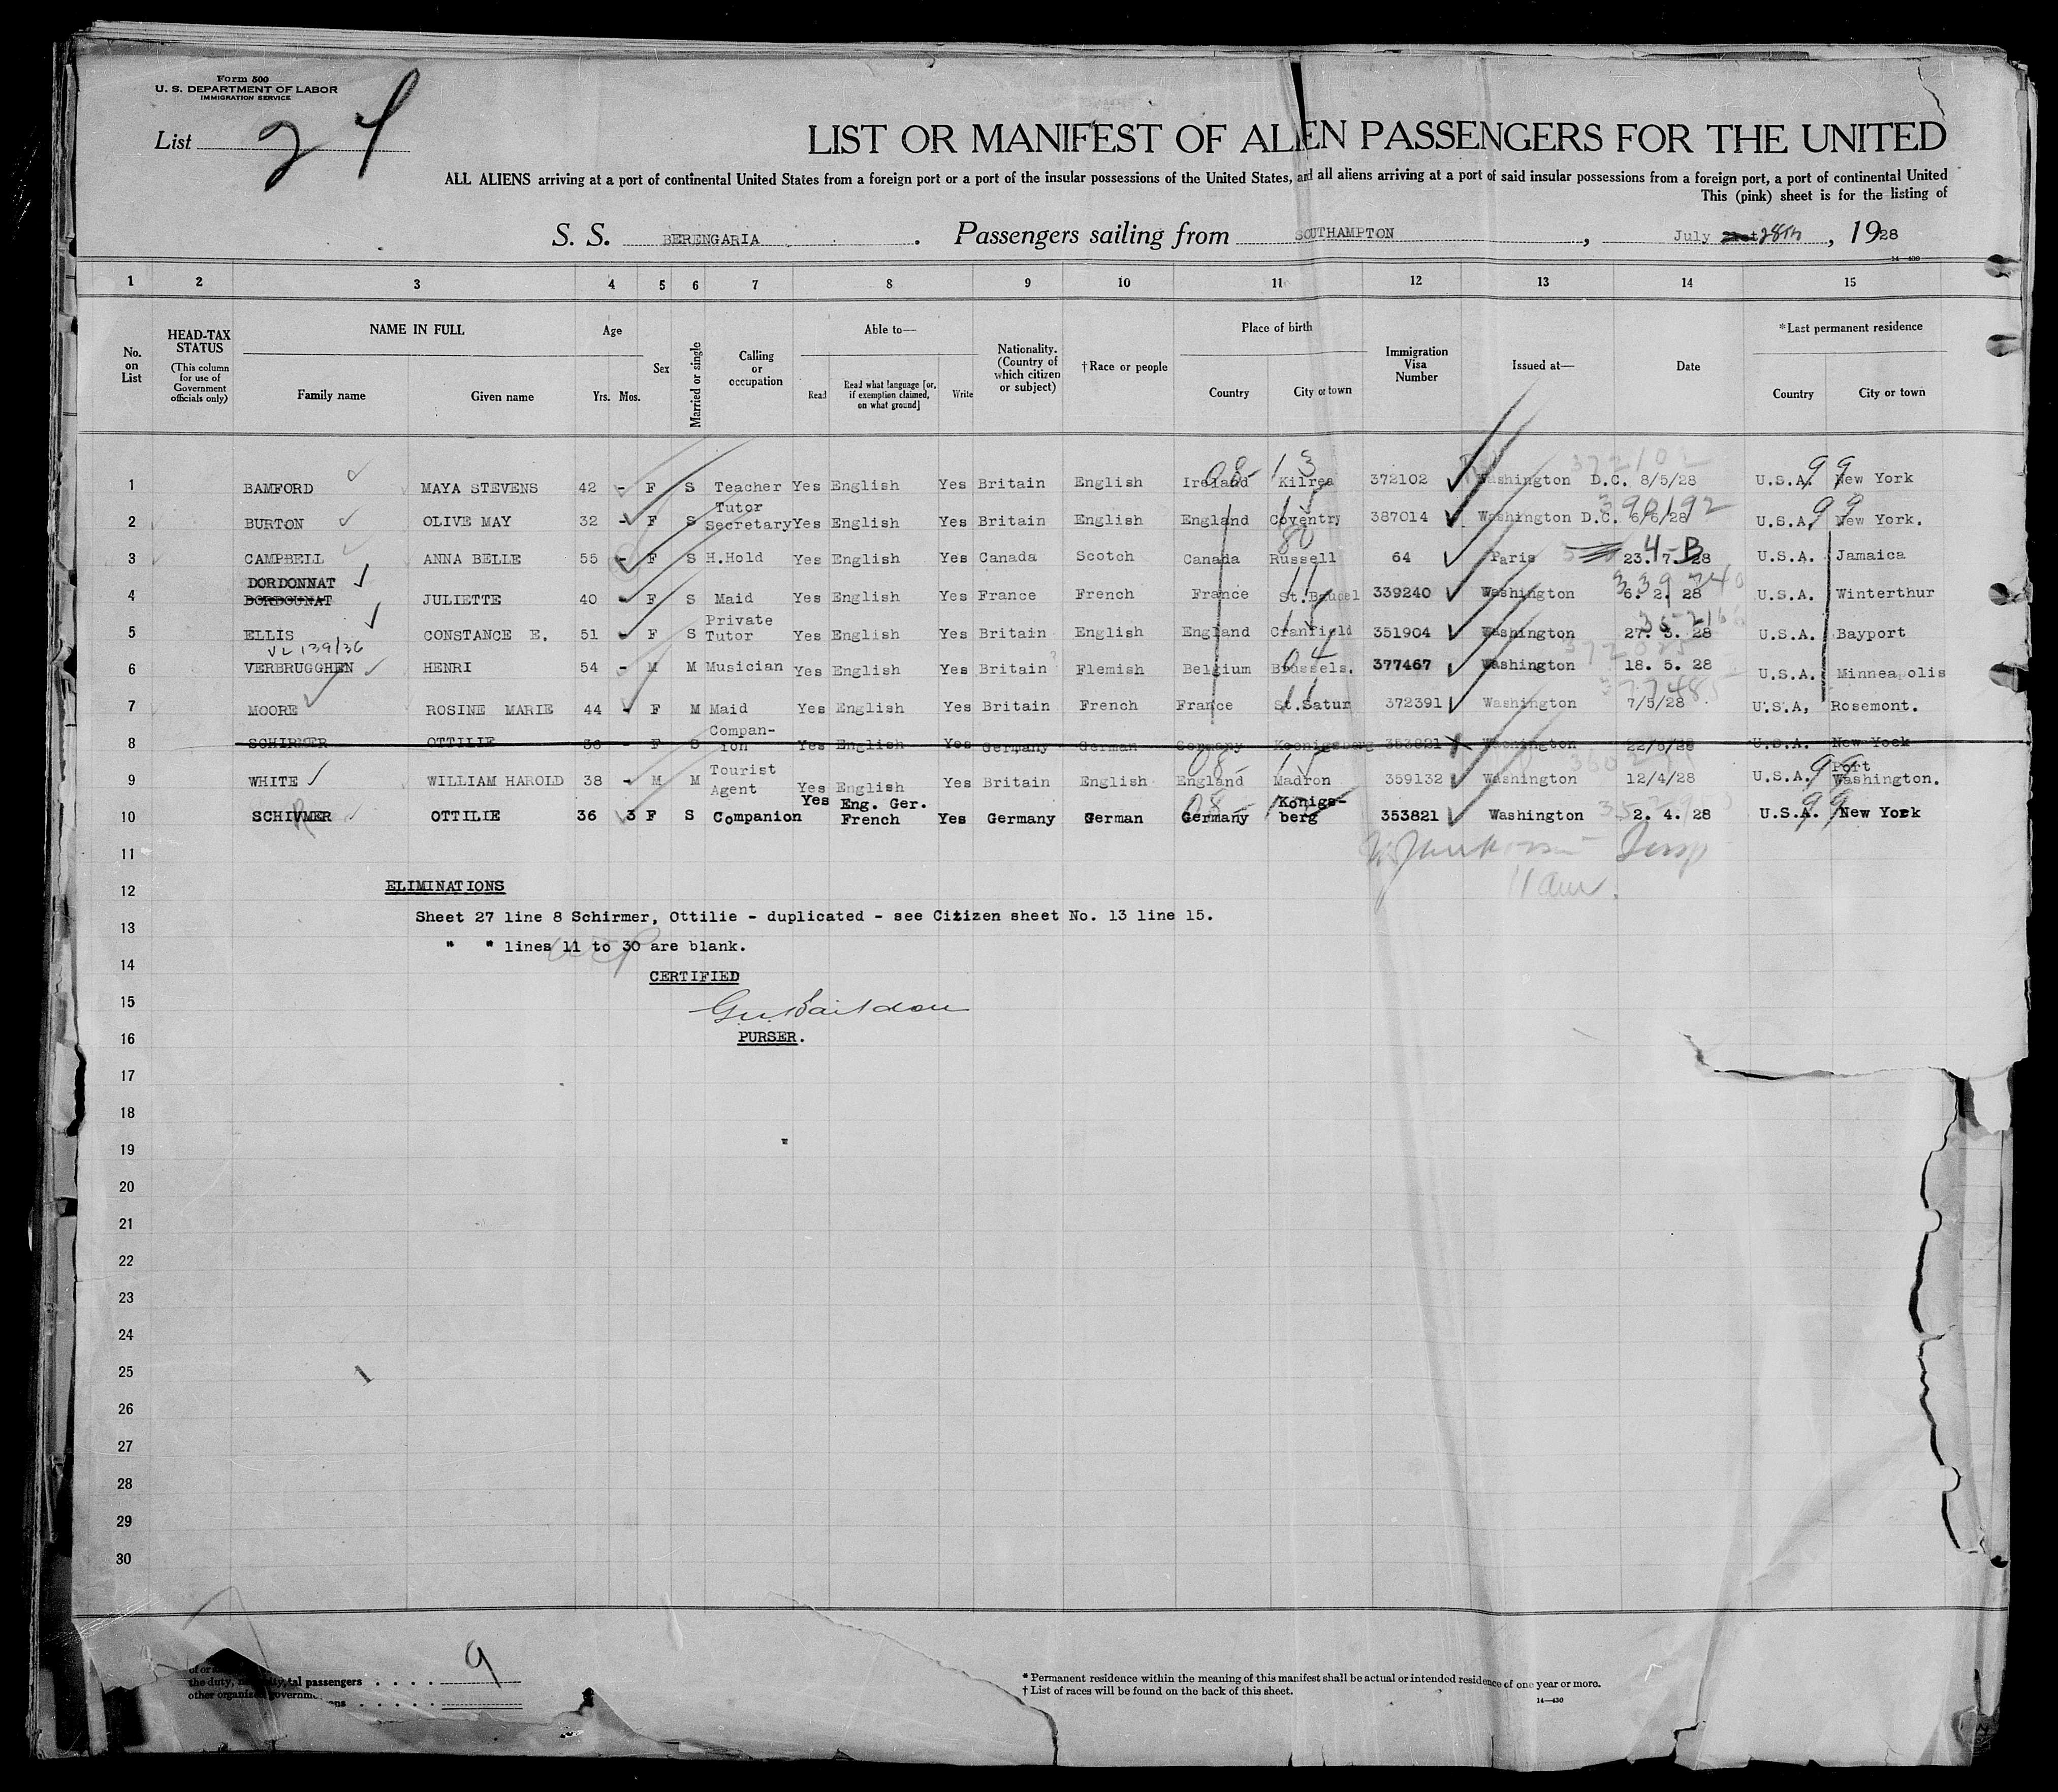 Form 500
U. S. DEPARTMENT OF LABOR
IMMIGRATION SERVICE
List 27
LIST OR MANIFEST OF ALIEN PASSENGERS FOR THE UNITED
ALL ALIENS arriving at a port of continental United States from a foreign port or a port of the insular possessions of the United States, and all aliens arriving at a port of said insular possessions from a foreign port, a port of continental United
This (pink) sheet is for the listing of
S. S. BERENGARIA. Passengers sailing from SOUTHAMPTON, July 28th, 1928
14—430
1 2 3 4 5 6 7 8 9 10 11 12 13 14 15
No. on List
HEAD-TAX STATUS (This column for use of Government officials only)
NAME IN FULL Family name Given name
Age Yrs. Mos.
Sex
Married or single
Calling or occupation
Able to— Read Read what language [or, if exemption claimed, on what ground] Write
Nationality. (Country of which citizen or subject)
†Race or people
Place of birth Country City or town
Immigration Visa Number
Issued at—
Date
*Last permanent residence Country City or town
1 BAMFORD MAYA STEVENS 42 - F S Teacher Yes English Yes Britain English Ireland Kilrea 372102 Washington D.C. 8/5/28 U.S.A. New York
2 BURTON OLIVE MAY 32 - F S Tutor Secretary Yes English Yes Britain English England Coventry 387014 Washington D.C. 6/6/28 U.S.A. New York.
3 CAMPBELL ANNA BELLE 55 - F S H.Hold Yes English Yes Canada Scotch Canada Russell 64 Paris 23. 7. 28 U.S.A. Jamaica
4 DORDONNAT DORDOUNAT JULIETTE 40 - F S Maid Yes English Yes France French France St.Baudel 339240 Washington 6. 2. 28 U.S.A. Winterthur
5 ELLIS CONSTANCE E. 51 - F S Private Tutor Yes English Yes Britain English England Cranfield 351904 Washington 27. 3. 28 U.S.A. Bayport
VL 139/36
6 VERBRUGGHEN HENRI 54 - M M Musician Yes English Yes Britain Flemish Belgium Brussels. 377467 Washington 18. 5. 28 U.S.A. Minneapolis
7 MOORE ROSINE MARIE 44 - F M Maid Yes English Yes Britain French France St.Satur 372391 Washington 7/5/28 U.S.A, Rosemont.
8 SCHIRMER OTTILIE 36 - F S Compan- ion Yes English Yes Germany German Germany Koenigsberg 353821 Washington 22/5/28 U.S.A. New York
9 WHITE WILLIAM HAROLD 38 - M M Tourist Agent Yes English Yes Britain English England Madron 359132 Washington 12/4/28 U.S.A. Port Washington.
10 SCHIRMER OTTILIE 36 3 F S Companion Yes Eng. Ger. French Yes Germany German Germany Konigs- berg 353821 Washington 2. 4. 28 U.S.A. New York
11
11 am.
12 ELIMINATIONS
Sheet 27 line 8 Schirmer, Ottilie - duplicated - see Citizen sheet No. 13 line 15.
13
" " lines 11 to 30 are blank.
14
CERTIFIED
15
16 PURSER.
17
18
19
20
21
22
23
24
25
26
27
28
29
30
passengers . . . . 9
* Permanent residence within the meaning of this manifest shall be actual or intended residence of one year or more.
† List of races will be found on the back of this sheet.
14—430